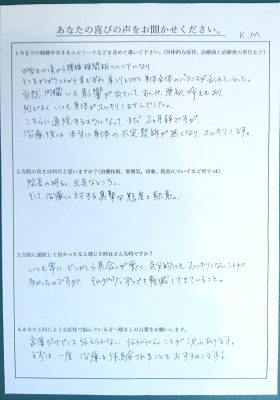 あなたの喜びの声をお聞かせください。
K M
1.今までの経緯や辛さをエピソードなどを含めて書いて下さい。(具体的な症状、治療前と治療後の変化など)
中学生の頃から腰椎椎間板ヘルニアになり
そこをかばうことから首もずれ、肩こりもひどく身体全体のバランスが乱れていました。
当然、内臓にも影響が出ていて、むくみ、便秘、冷えもあり
何となくいつも身体がスッキリしませんでした。
こちらに通院するようになって、まだ、2ヵ月弱ですが、
治療後は本当に身体の不定愁訴が無くなり、スッキリします。
2.当院の良さは何だと思いますか？(治療技術、雰囲気、印象、院長についてなど何でも ok)
院長の明るく、元気なところ。
そして、治療に対する真摯な態度と熱意。
3.当院に通院して良かったなと感じた時はどんな時ですか？
いつも常にどこかしら具合が悪く、気分的にもスッキリしないことが
多かったのですが、それが少しずつでも軽減してきていること。
4.あなたと同じような症状で悩んでいる方へ励ましの言葉をお願いします。
言葉だけでは伝えきれない、伝わらないことが沢山あります。
まずは、一度、治療を体感されますことをおすすめします。